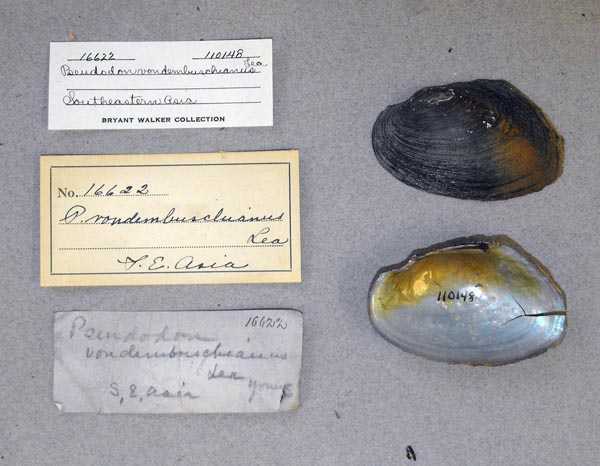 16622 110148
Pseudodon vondembuschianus Lea
Southeastern Asia
BRYANT WALKER COLLECTION
No. 16622
P. vondembuschianus
Lea
S. E. Asia
16622
Pseudodon
vondembuschianus
Lea young
S, E, Asia
110148